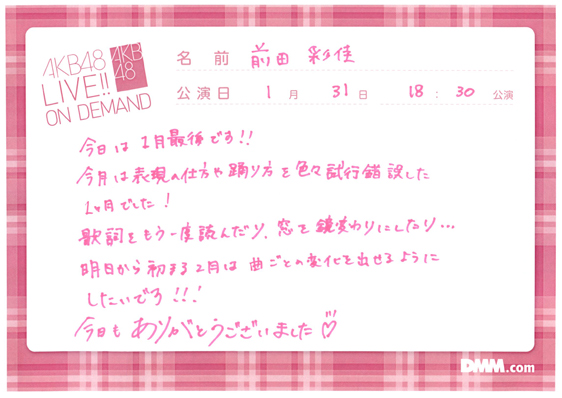 AKB48
LIVE!!
ON DEMAND
AKB
48
名前 前田 彩佳
公演日 1月 31日 18:30 公演
今日は1月最後です!!
今月は表現の仕方や踊り方を色々試行錯誤した
1ヶ月でした!
歌詞をもう一度読んだり、窓を鏡変わりにしたり…
明日から初まる2月は曲ごとの変化を出せるように
したいです!!!
今日もありがとうございました♡
DMM.com